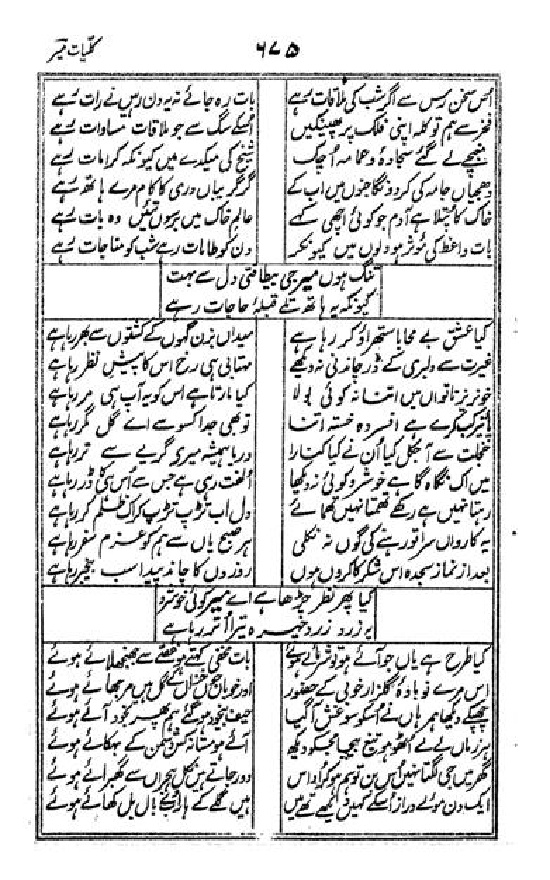 کلیات میر
۶۷۵
اس سخن رس سے اگر شب کی ملاقات رہے
بات رہ جائے نہ یہ دن رہیں نے رات رہے
فخر سے ہم تو کلہ اپنی فلک پر پھینکیں
اسکے سگ سے جو ملاقات مساوات رہے
مغبچے لے گئے سجادہ و عمامہ اچک
شیخ کی میکدے میں کیونکہ کرامات رہے
دھجیاں جامہ کی کر دونگا جنوں میں اب کے
گر گریباں دری کا کام مرے ہاتھ رہے
خاک کا پتلا ہے آدم جو کوئی اچھی کہے
عالم خاک میں برسوں تئیں وہ بات رہے
بات واعظ کی موثر ہو دلوں میں کیونکر
دن کو طامات رہے شب کو مناجات رہے
تنگ ہوں میر جی بیطاقتی دل سے بہت
کیونکہ یہ ہاتھ تلے قبلۂ حاجات رہے
کیا عشق بے محابا ستھراؤ کر رہا ہے
میداں بزن گہوں کے کشتوں سے بھر رہا ہے
غیرت سے دلبری کے ڈر چاندنی نہ دیکھے
مہتابی ہی رخ اس کا پیش نظر رہا ہے
خوں ریز ناتواں میں اتنا نہ کوئی بولا
کیا مارتا ہے اس کو یہ آپ ہی مر رہا ہے
پائیز کب کرے ہے افسردہ خستہ اتنا
تو بھی جدا کسو سے اے گل مگر رہا ہے
خجلت سے آجکل کیا اُن نے کیا کنارا
دریا ہمیشہ میرے گریے سے تر رہا ہے
میں اک نگاہ گاہے خوشرو کوئی نہ دیکھا
الفت رہی ہے جس سے اُس ہی کا ڈر رہا ہے
رہتا نہیں ہے رکھے تھمتا نہیں تھمائے
دل اب تڑپ تڑپ کر اک ظلم کر رہا ہے
یہ کارواں سرا تو رہنے کی گوں نہ نکلی
ہر صبح یاں سے ہم کو عزم سفر رہا ہے
بعد از نماز سجدہ اس شکر کا کروں ہوں
روزوں کا چاند پیدا سب بیخبر رہا ہے
کیا پھر نظر چڑھا ہے اے میر کوئی خوشرو
یہ زرد زرد چہرہ تیرا اُتر رہا ہے
کیا طرح ہے یاں جو آئے ہو تو شرمائے ہوئے
بات مخفی کہتے ہو غصے سے جھنجھلائے ہوئے
اس مرے نوبادۂ گلزار خوبی کے حضور
اور خوباں جوں خزاں کے گل ہیں مرجھائے ہوئے
چھپکے دیکھا ہمرہاں نے اسکو سو غش آگیا
حیف بیخود ہو گئے ہم پھر بخود آئے ہوئے
ہر زماں لے لے اٹھو ہو تیغ بیجا مجکو دیکھ
آئے ہو مستانہ کس دشمن کے بہکائے ہوئے
گھر میں جی لگتا نہیں اُس بن تو ہم ہو کر اداس
دور جاتے ہیں نکل ہجراں سے گھبرائے ہوئے
ایک دن موے دراز اُسکے کہیں دیکھے تھے میں
ہیں گلے کے ہار اب وے بال بل کھائے ہوئے